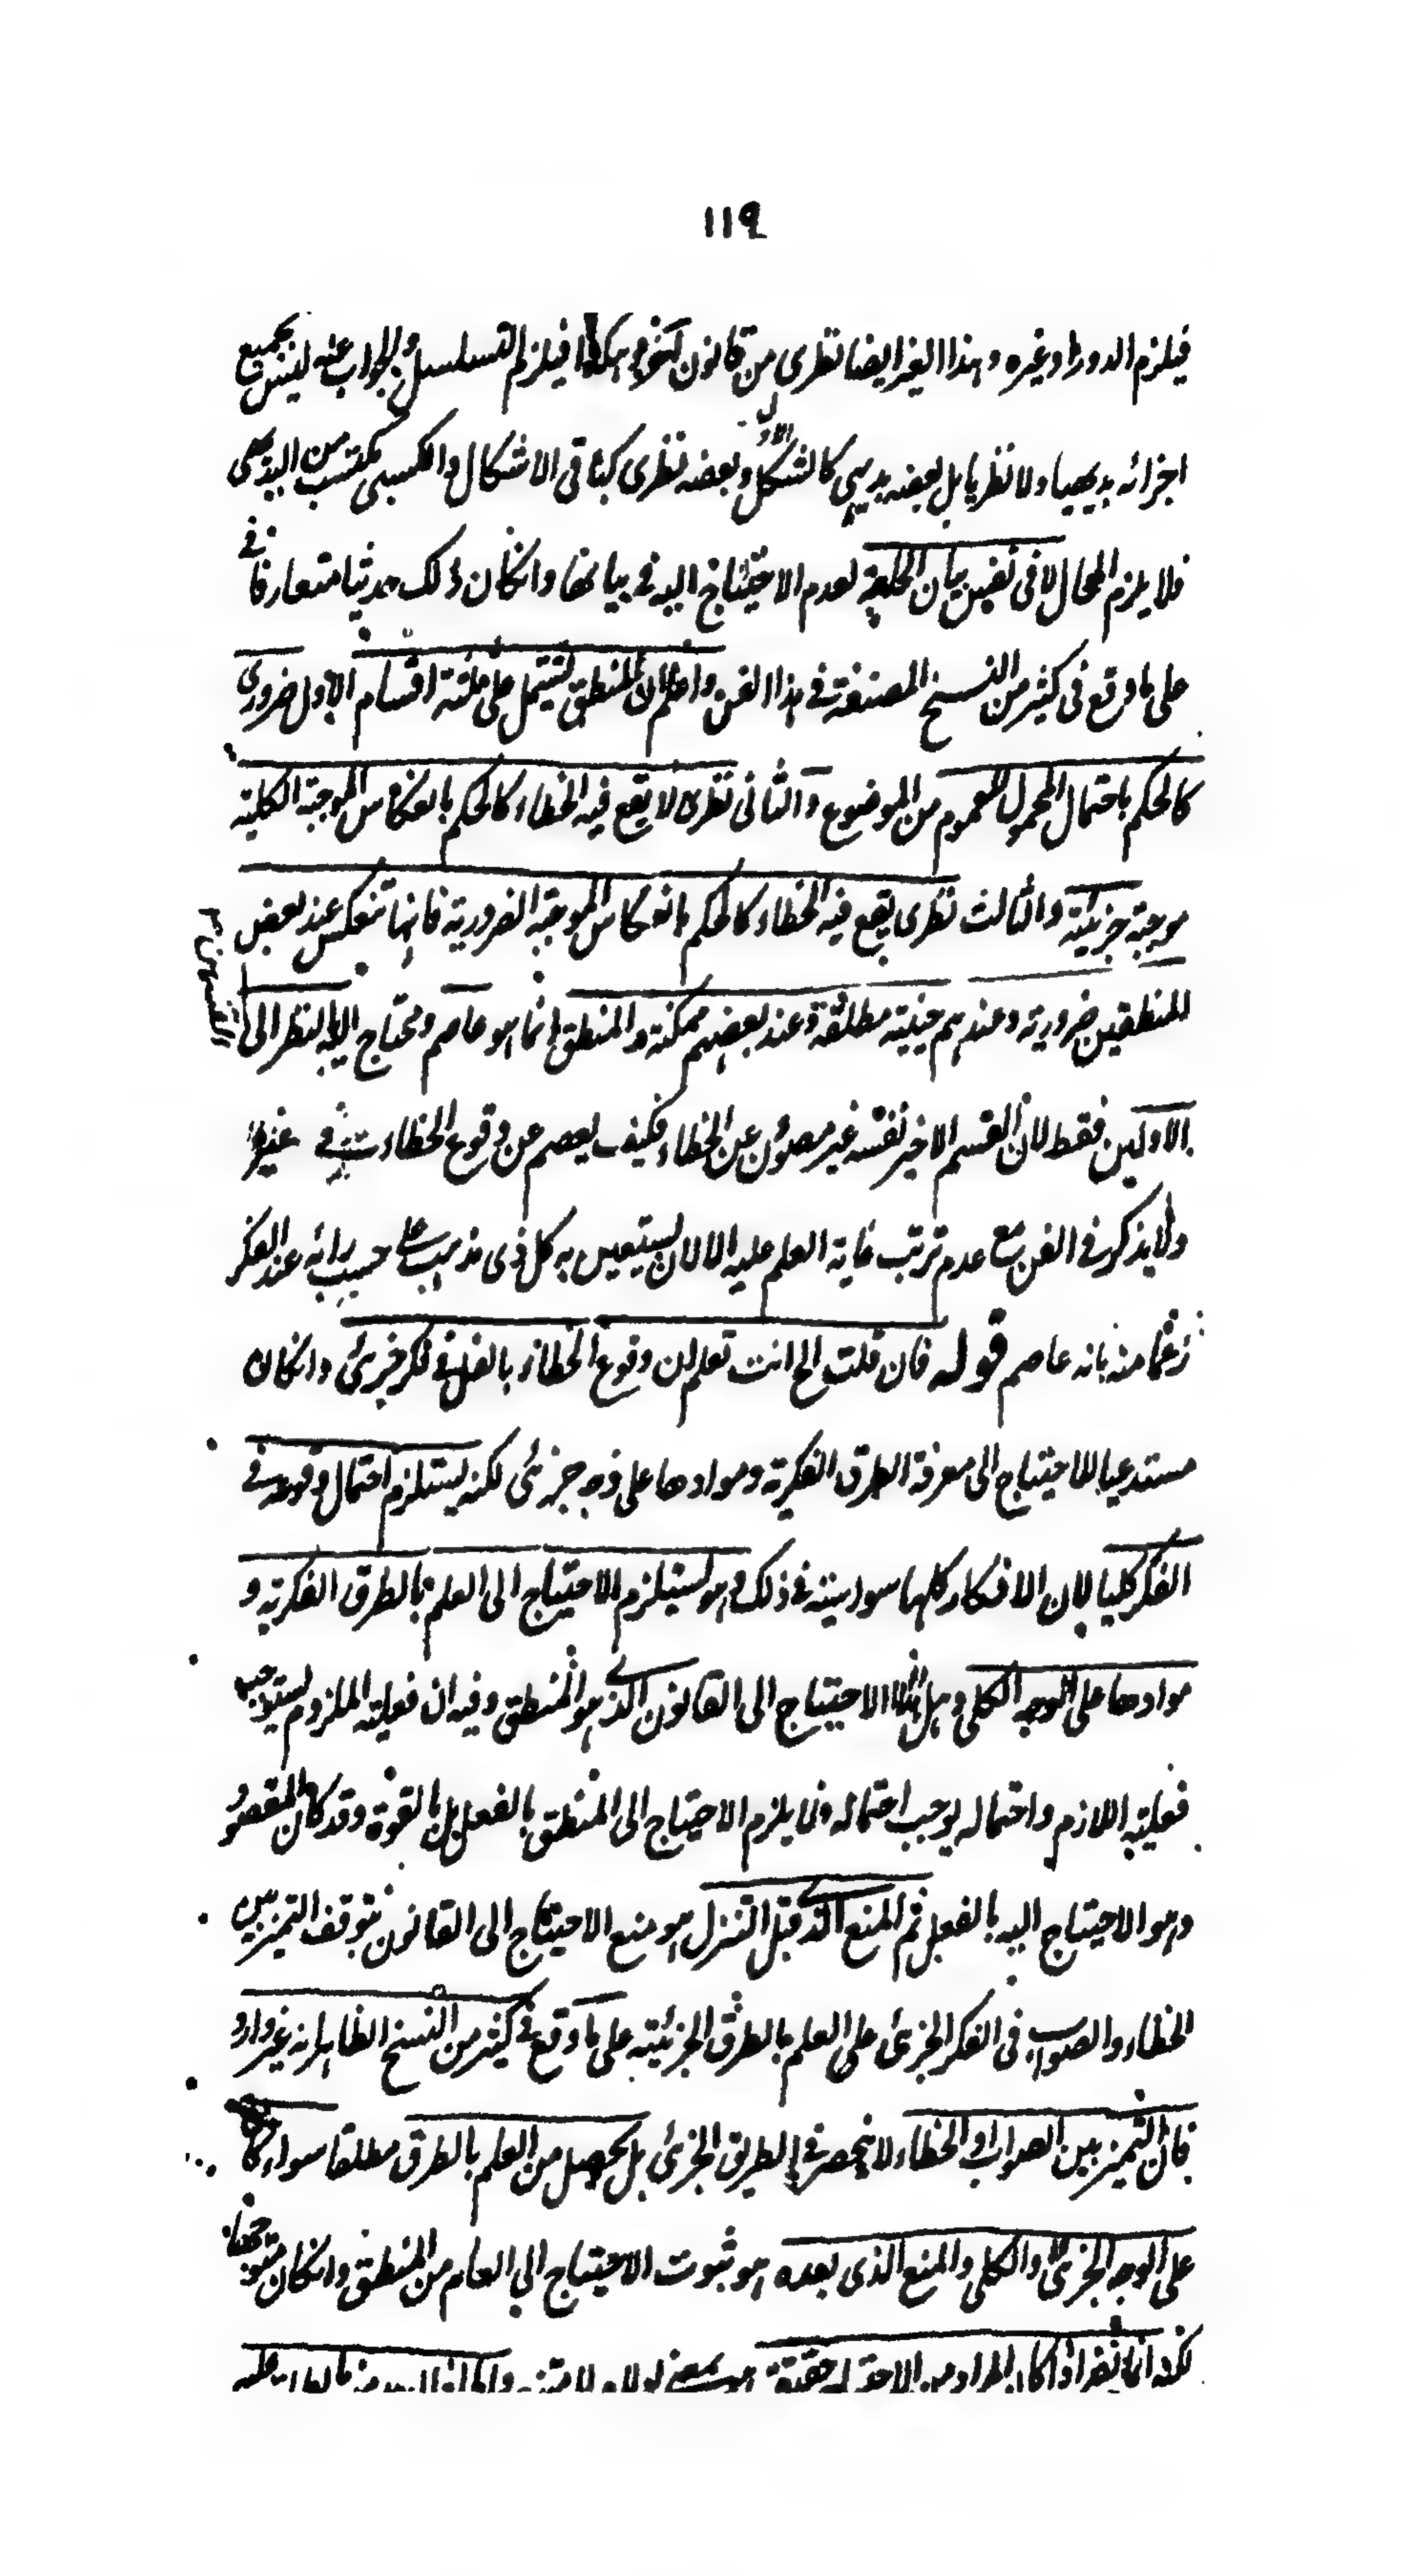 ١١٩
فيلزم الدور او غيره وهذا الغير ايضا نظرى من قانون آخر وهكذا فيلزم التسلسل والجواب عنه ليس بجميع
اجزائه بديهيا ولا نظريا بل بعضه بديهى كالشكل الاول وبعضه نظرى كباقى الاشكال والكسبى مكتسب من البديهى
فلا يلزم المحال لا فى نفس بيان الحاجة لعدم الاحتياج اليه فى بيانها وانكان ذلك حديثا متعارفا فى
على ما وقع فى كثير من النسخ المصنفة فى هذا الفن واعلم ان المنطق يشتمل على ثلثة اقسام الاول ضرورى
كالحكم باحتمال المحمول للعموم من الموضوع والثانى نظرى لا يقع فيه الخطاء كالحكم بانعكاس الموجبة الكلية
موجبة جزئية والثالث نظرى يقع فيه الخطاء كالحكم بانعكاس الموجبة الضرورية فانها تنعكس عند بعض
المنطقين ضرورية وعندهم حينية مطلقة وعند بعضهم ممكنة والمنطق انما هو عاصم ومحتاج اليه بالنظر الى القسمين
الاولين فقط لان القسم الاخير نفسه غير مصون عن الخطاء فكيف يعصم عن وقوع الخطاء فى غيره
ولا يذكر فى الفن مع عدم ترتب غاية العلم عليه الا لان يستعين به كل ذى مذهب على حسب رائه عند الفكر
زعما منه بانه عاصم قوله فان قلت الخ انت تعلم ان وقوع الخطاء بالفعل فى فكر جزئى وانكان
مستدعيا للاحتياج الى معرفة الطرق الفكرية وموادها على وجه جزئى لكنه يستلزم احتمال وقوعه فى
الفكر كليا لان الافكار كلها سواسية فى ذلك وهو يستلزم الاحتياج الى العلم بالطرق الفكرية و
موادها على الوجه الكلى وهل هذا الا الاحتياج الى القانون الذى هو المنطق وفيه ان فعلية الملزوم يستوجب
فعلية اللازم واحتماله يوجب احتماله فلا يلزم الاحتياج الى المنطق بالفعل بل بالقوة وقد كان المقصود
وهو الاحتياج اليه بالفعل ثم المنع الذى قبل التنزل هو منع الاحتياج الى القانون بتوقف التميز بين
الخطاء والصواب فى الفكر الجزئى على العلم بالطرق الجزئية على ما وقع فى كثير من النسخ الظاهر انه غير وارد
فان التميز بين الصواب والخطاء لا ينحصر فى الطريق الجزئى بل يحصل من العلم بالطرق مطلقا سواء كان
على الوجه الجزئى او الكلى والمنع الذى بعده هو ثبوت الاحتياج الى العام من المنطق وانكان متوجها
لكنه انما